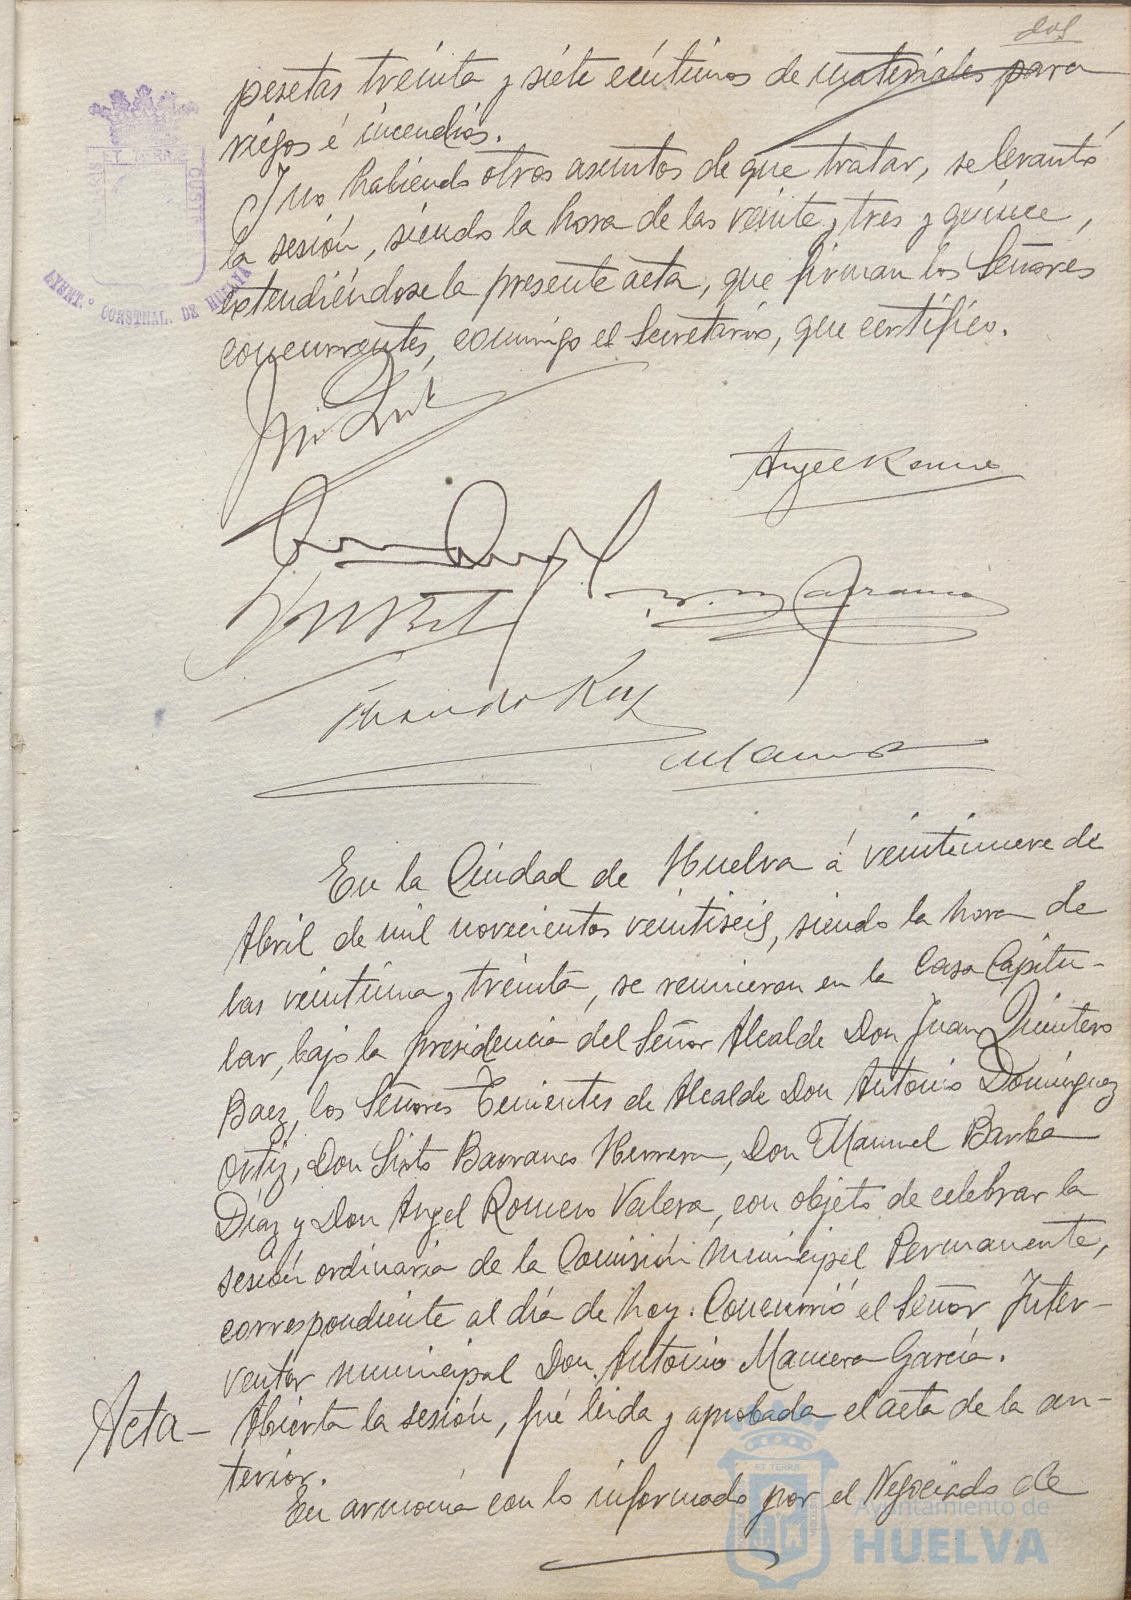 dos
pesetas treinta y siete céntimos de materiales para
riegos é incendios.
Y no habiendo otros asuntos de que tratar, se levantó
la sesión, siendo la hora de las veinte y tres y quince,
extendiéndose la presente acta, que firman los Señores
concurrentes, conmigo el Secretario, que certifico.
AYUNT.º CONSTNAL. DE HUELVA
Angel Romero
Barranco
Fernando Ruiz
En la Ciudad de Huelva á veintinueve de
Abril de mil novecientos veintiseis, siendo la hora de
las veintiuna y treinta, se reunieron en la Casa Capitu-
lar, bajo la presidencia del Señor Alcalde Don Juan Quintero
Baez, los Señores Tenientes de Alcalde Don Antonio Domínguez
Ortiz, Don Sixto Barranco Herrera, Don Manuel Barba
Díaz y Don Angel Romero Valera, con objeto de celebrar la
sesión ordinaria de la Comisión municipal Permanente,
correspondiente al día de hoy. Concurrió el Señor Inter-
ventor municipal Don Antonio Mancera García.
Acta - Abierta la sesión, fué leida y aprobada el acta de la an-
terior.
En armonía con lo informado por el Negociado de
Ayuntamiento de
HUELVA